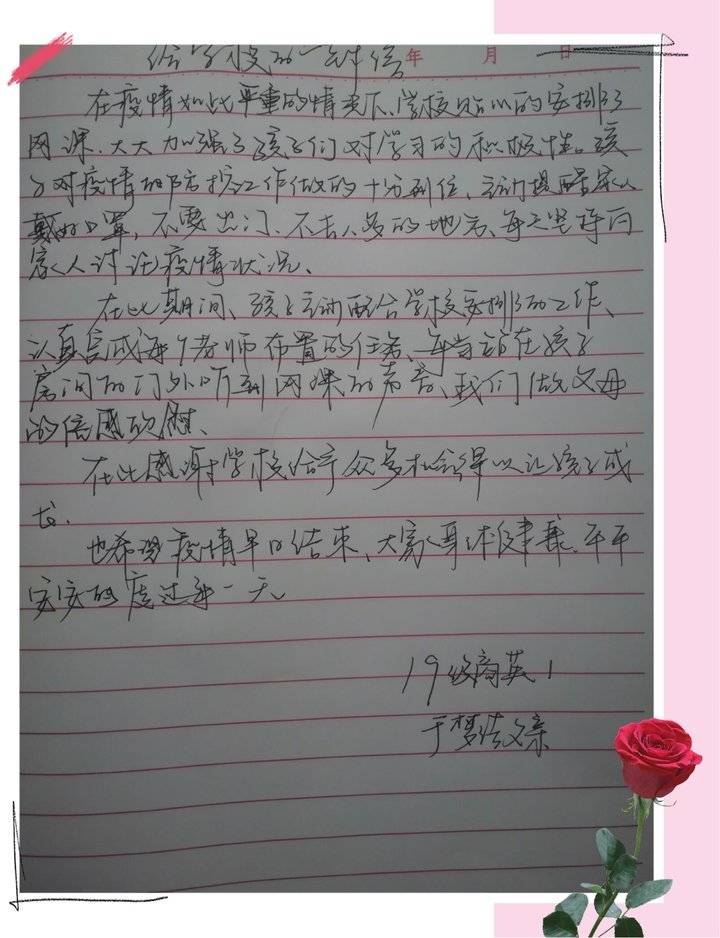 给学校的一封信 年 月 日
在疫情如此严重的情况下、学校贴心的安排了
网课、大大加强了孩子们对学习的积极性。孩
子对疫情的防护工作做的十分到位、主动提醒家人
戴好口罩, 不要出门、不去人多的地方、每天坚持向
家人讨论疫情状况、
在此期间、孩子主动配合学校安排的工作、
认真完成每个老师布置的任务、每当站在孩子
房间的门外听到网课的声音、我们做父母
的倍感欣慰、
在此感谢学校给予众多机会得以让孩子成
长.
也希望疫情早日结束、大家身体健康、平平
安安的度过每一天。
19级商英1
于梦洁父亲